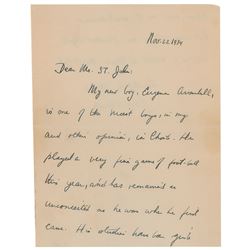 Nov. 22, 1934
Dear Mr. St. John:
My new boy, Eugene
is one of the nicest boys, in my
and others opinion, in Choate. He
played a very fine game of foot-ball
this year, and has remained as
unconceited as he was when he first
came. His studies have been quite